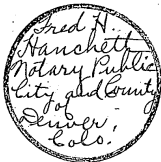 Fred H.
Hanchett
Notary Public
City and County
of
Denver,
Colo.